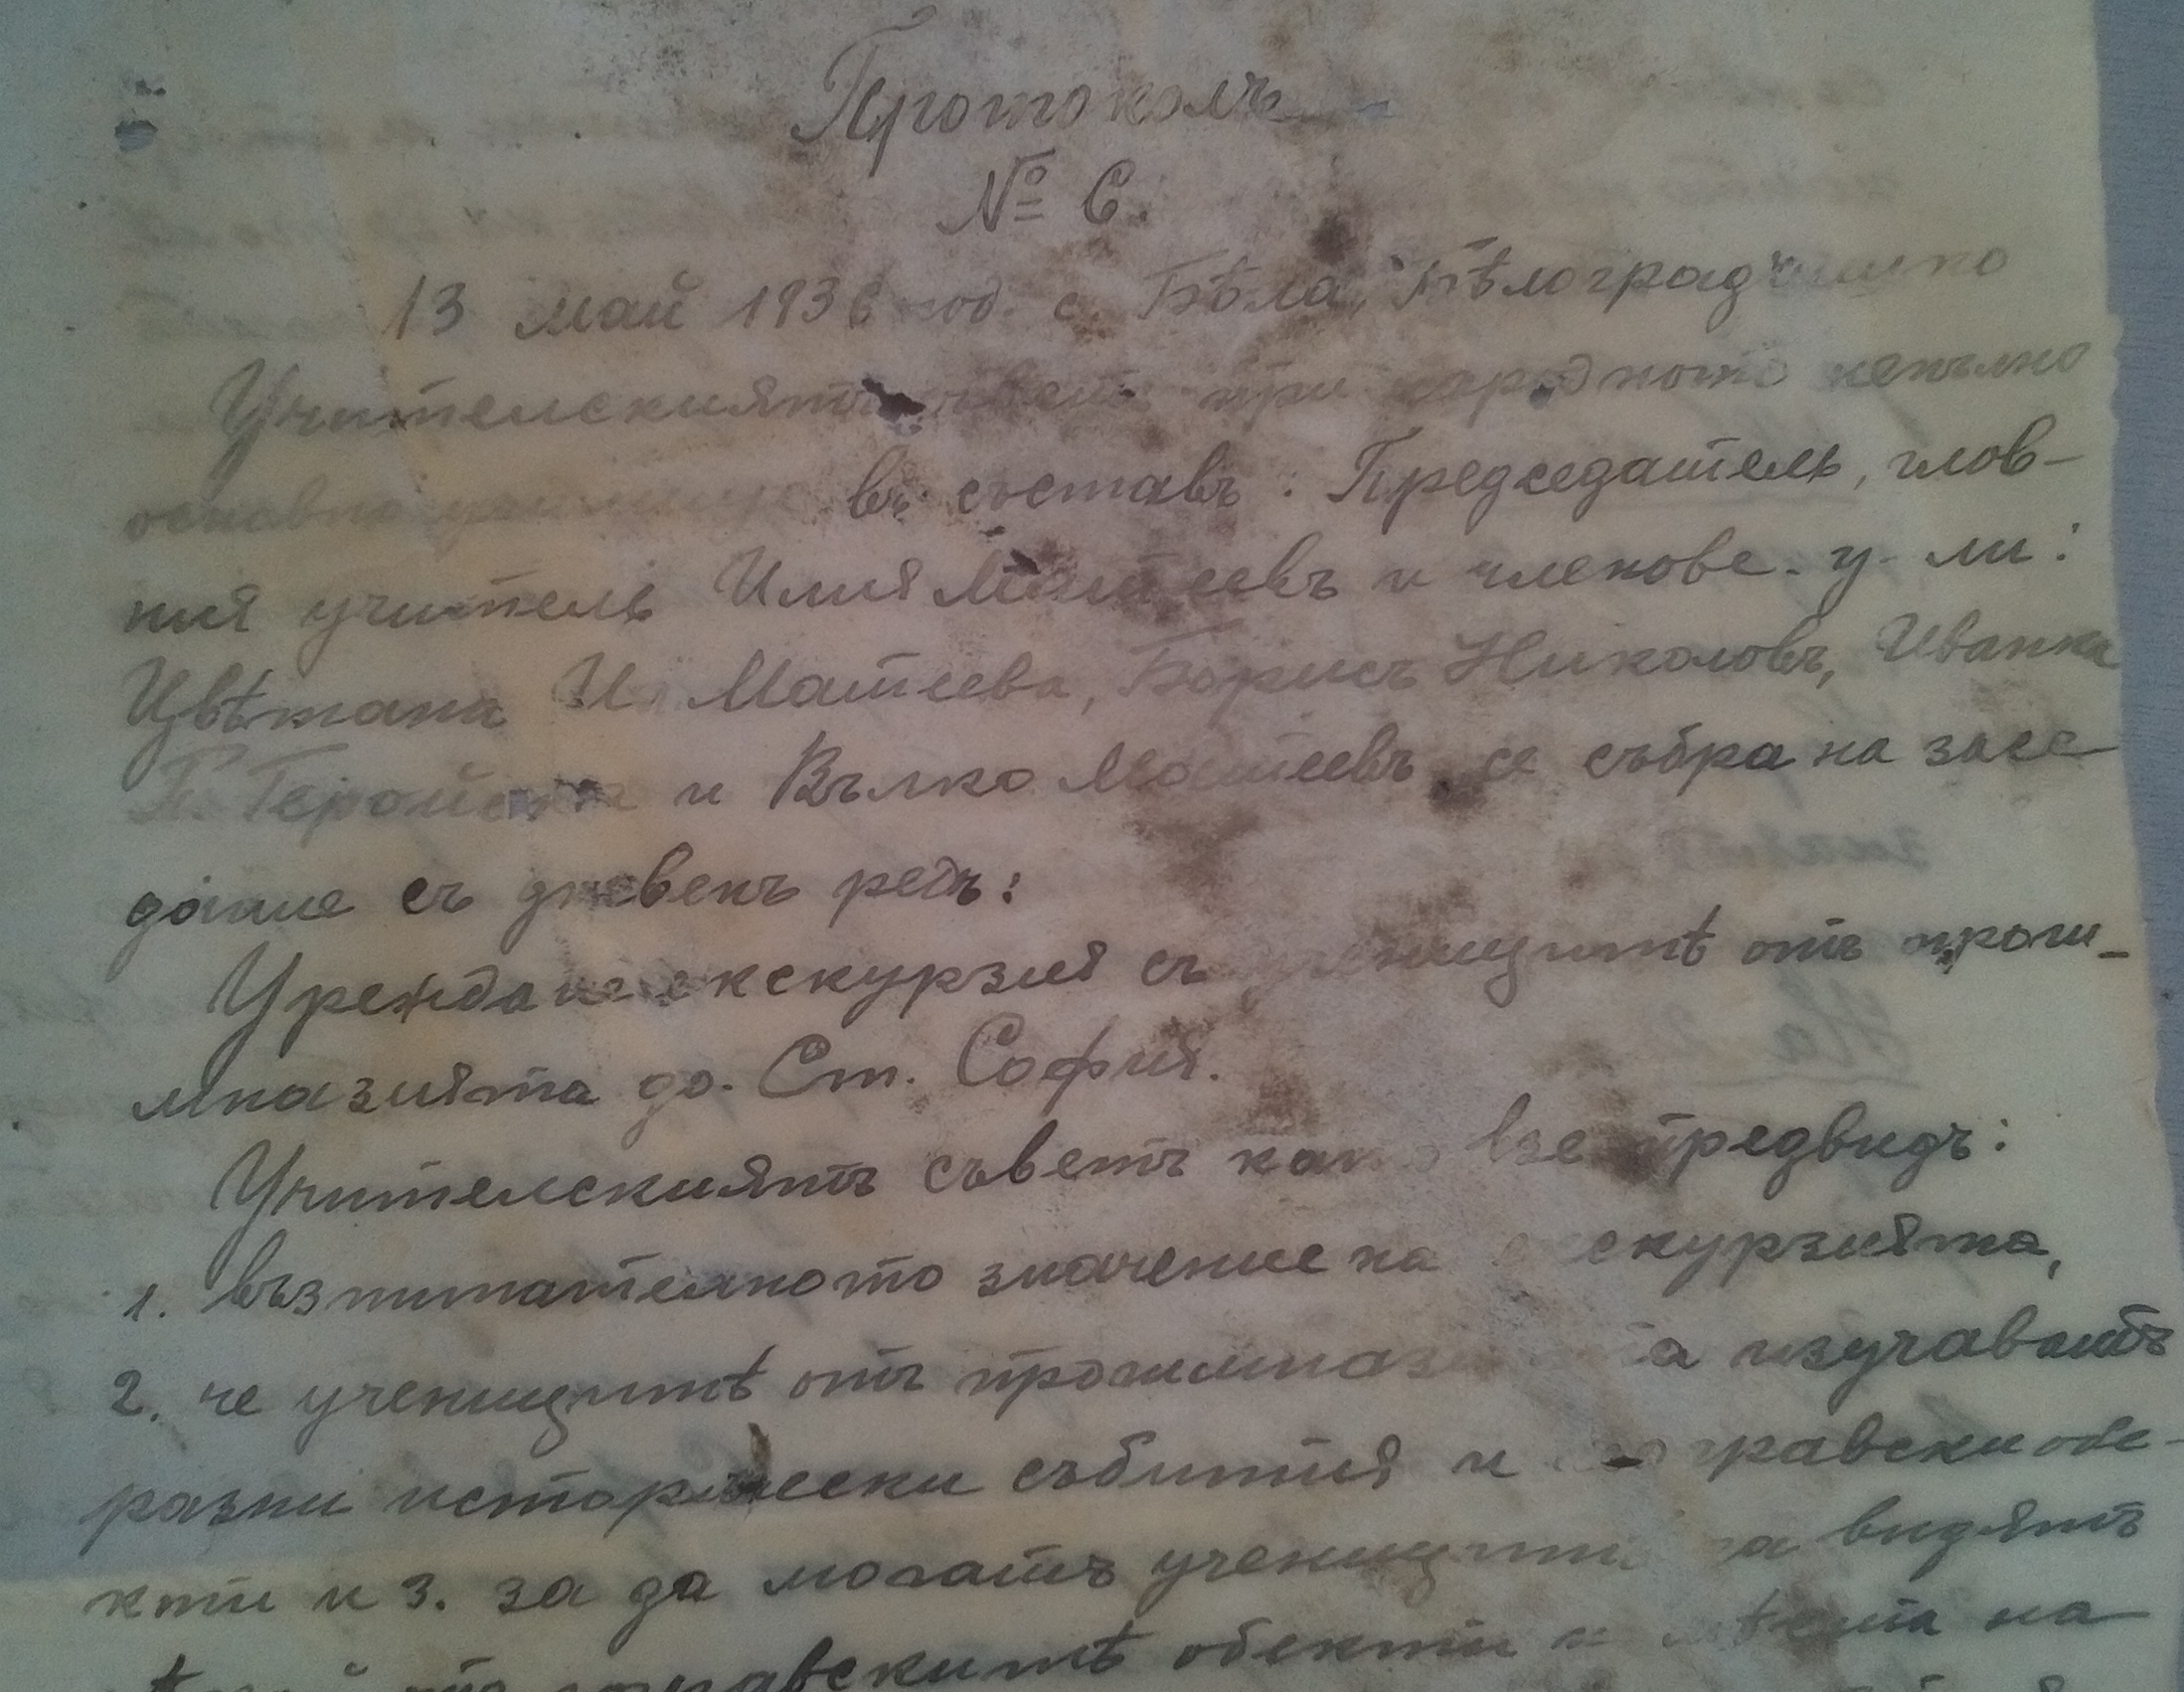 Протоколъ
№ 6.
13 май 1936 год. с. Бѣла, Бѣлоградчишко
Учителскиятъ съветъ при народното непълно
основно училище въ съставъ: Председатель, глав-
ния учитель Илия Матеевъ и членове - у-ли:
Цвѣтана И. Матеева, Борисъ Николовъ, Иванка
и Вълко Матеевъ се събра на засе-
дание съ дневенъ редъ:
Уреждане екскурзия съ ученицитѣ отъ проги-
мназията до. Ст. София.
Учителскиятъ съветъ като взе предвидъ:
1. възпитателното значение на екскурзията,
2. че ученицитѣ отъ прогимназията изучаватъ
разни исторически събития и географски обе-
кти и 3. за да могатъ ученицитѣ да видятъ
обекти и мѣста на